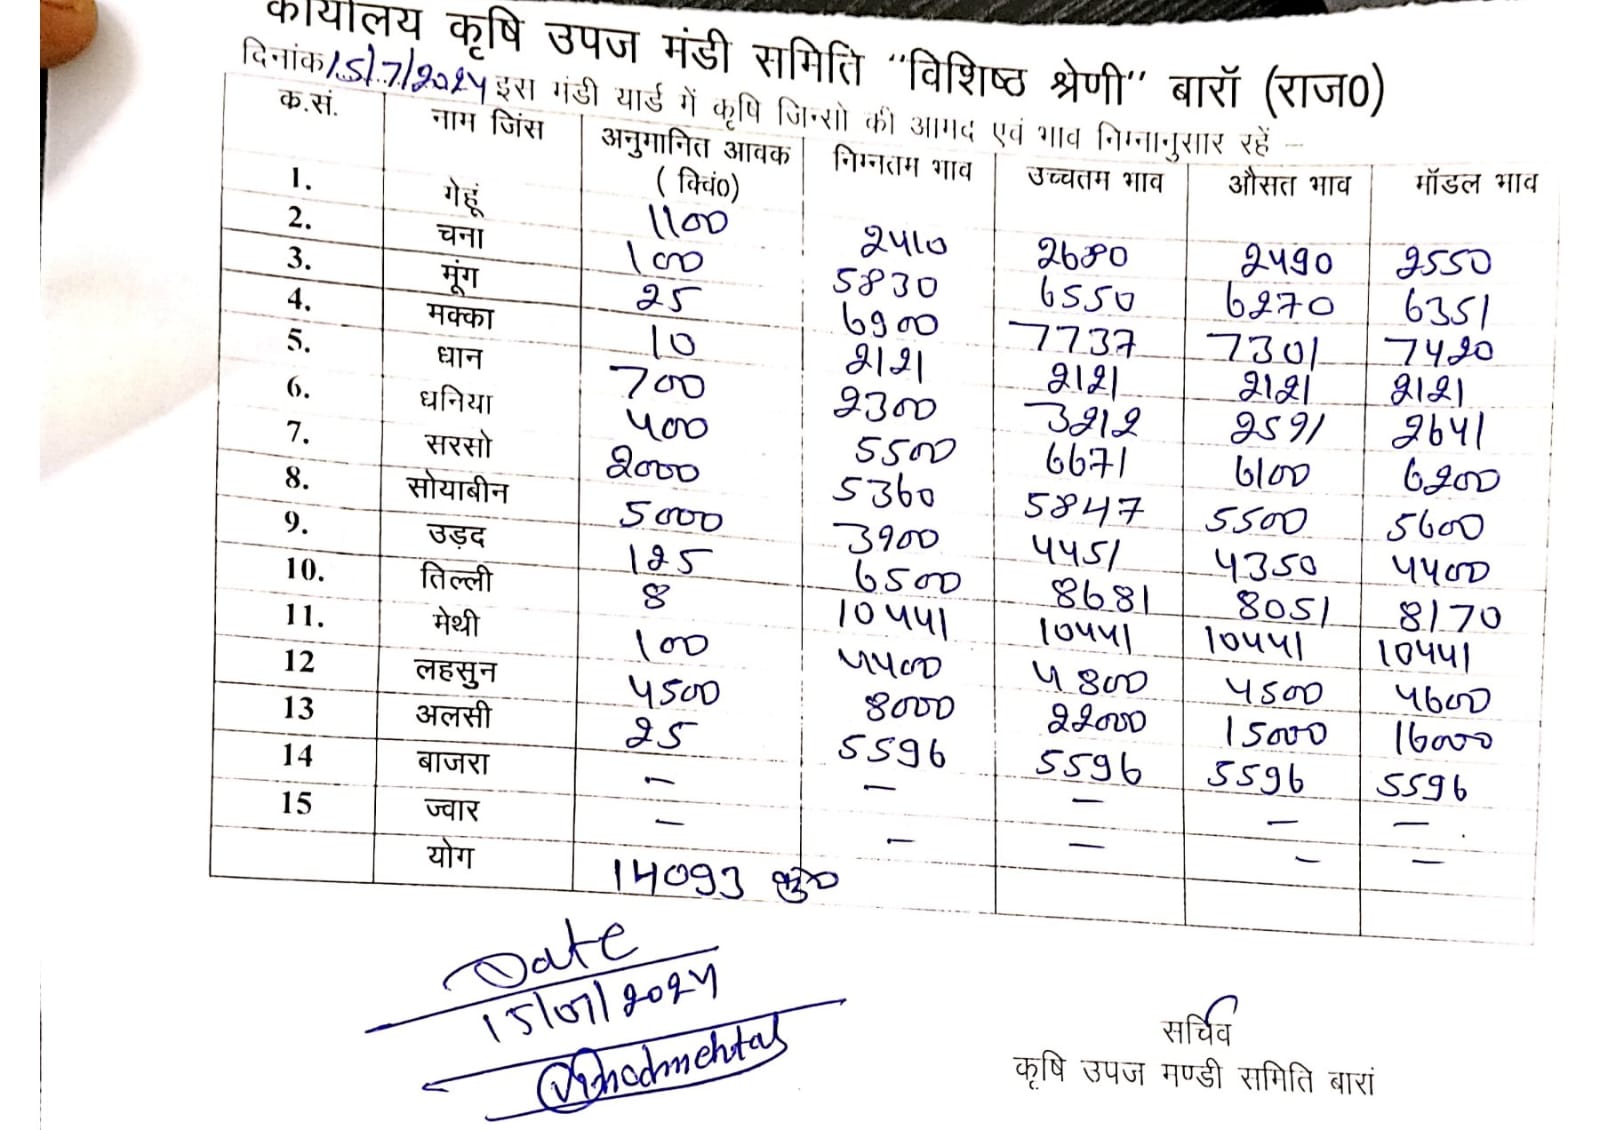 कार्यालय कृषि उपज मंडी समिति "विशिष्ठ श्रेणी" बारॉ (राज0)
दिनांक 15/7/2024 इस मंडी यार्ड में कृषि जिन्सो की आमद एवं भाव निम्नानुसार रहें –
क.सं. नाम जिंस अनुमानित आवक (क्विं0) निम्नतम भाव उच्चतम भाव औसत भाव मॉडल भाव
1. गेहूं 1100 2410 2680 2490 2550
2. चना 100 5830 6550 6270 6351
3. मूंग 25 6900 7737 7301 7420
4. मक्का 10 2121 2121 2121 2121
5. धान 700 2300 3212 2591 2641
6. धनिया 400 5500 6671 6100 6200
7. सरसो 2000 5360 5847 5500 5600
8. सोयाबीन 5000 3900 4451 4350 4400
9. उड़द 125 6500 8681 8051 8170
10. तिल्ली 8 10441 10441 10441 10441
11. मेथी 100 4400 4800 4500 4600
12 लहसुन 4500 8000 22000 15000 16000
13 अलसी 25 5596 5596 5596 5596
14 बाजरा – – – – –
15 ज्वार – – – – –
योग 14093
Date
15/07/2024
Vinodmehta
सचिव
कृषि उपज मण्डी समिति बारां